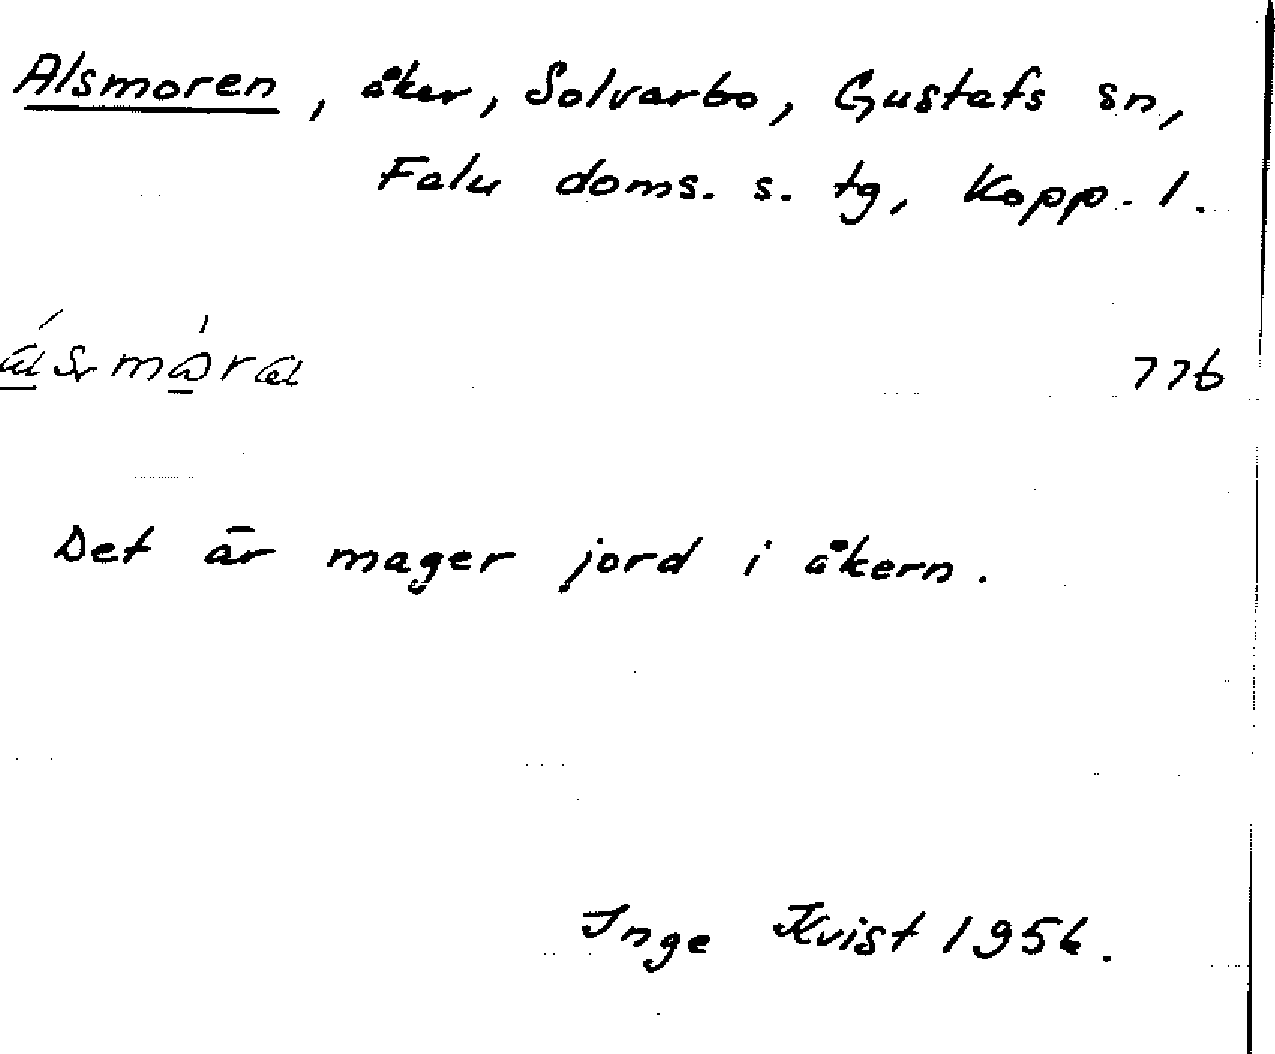 Alsmoren, åker, Solvarbo, Gustafs sn,
Falu doms. s. tg, Kopp. l.
776
Det är mager jord i åkern.
Inge Kvist 1956.